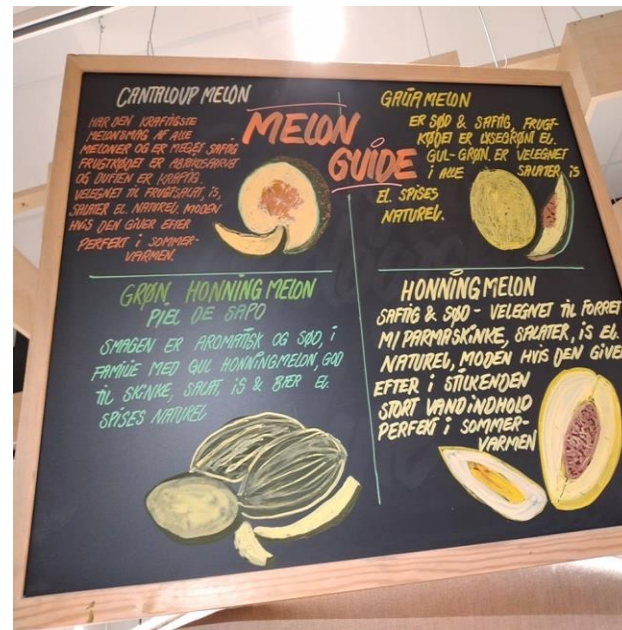 MELON
GUIDE
CANTALOUP MELON
HAR DEN KRAFTIGSTE
MELONSMAG AF ALLE
MELONER OG ER MEGET SAFTIG
FRUGTKØDET ER ABRIKOSFARVET
OG DUFTEN ER KRAFTIG.
VELEGNET TIL FRUGTSALAT, IS,
SALATER EL. NATUREL. MODEN
HVIS DEN GIVER EFTER
PERFEKT i SOMMER-
VARMEN.
GALIA MELON
ER SØD & SAFTIG, FRUGT-
KØDET ER LYSEGRØNT EL.
GUL-GRØN. ER VELEGNET
i ALLE SALATER, IS
EL. SPISES
NATUREL.
GRØN HONNING MELON
PIEL DE SAPO
SMAGEN ER AROMATISK OG SØD, i
FAMILIE MED GUL HONNINGMELON, GOD
TIL SKINKE, SALAT, IS & BÆR EL.
SPISES NATUREL
HONNING MELON
SAFTIG & SØD - VELEGNET TIL FORRET
M/ PARMASKINKE, SALATER, IS EL.
NATUREL, MODEN HVIS DEN GIVE
EFTER i STILKENDEN
STORT VANDINDHOLD
PERFEKT i SOMMER-
VARMEN